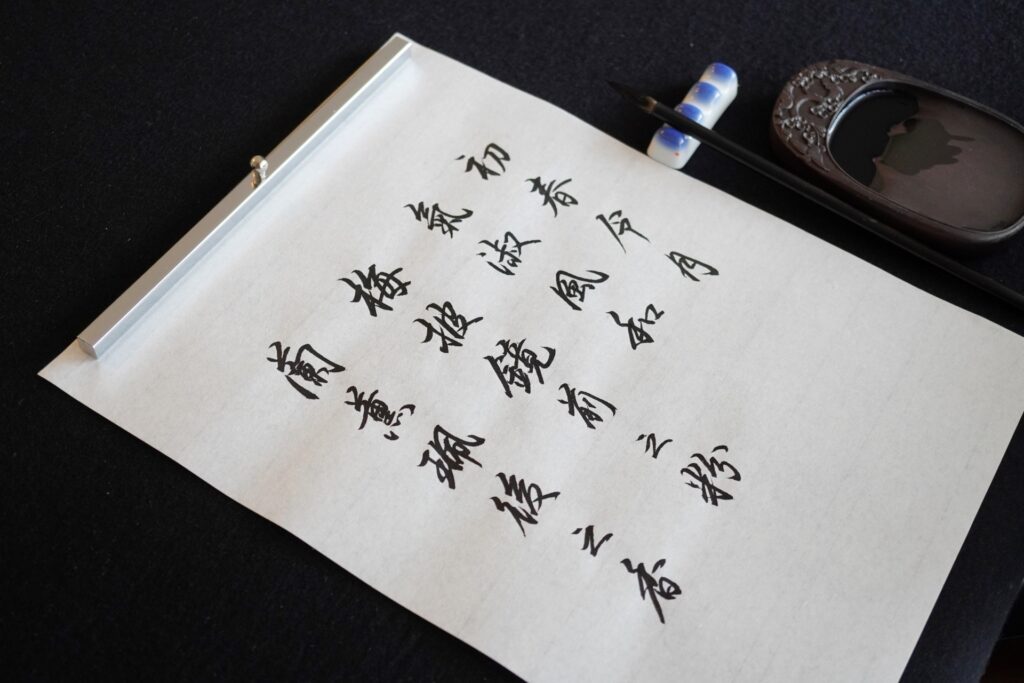 初春令月
氣淑風和
梅披鏡前之粉
蘭薫珮後之香